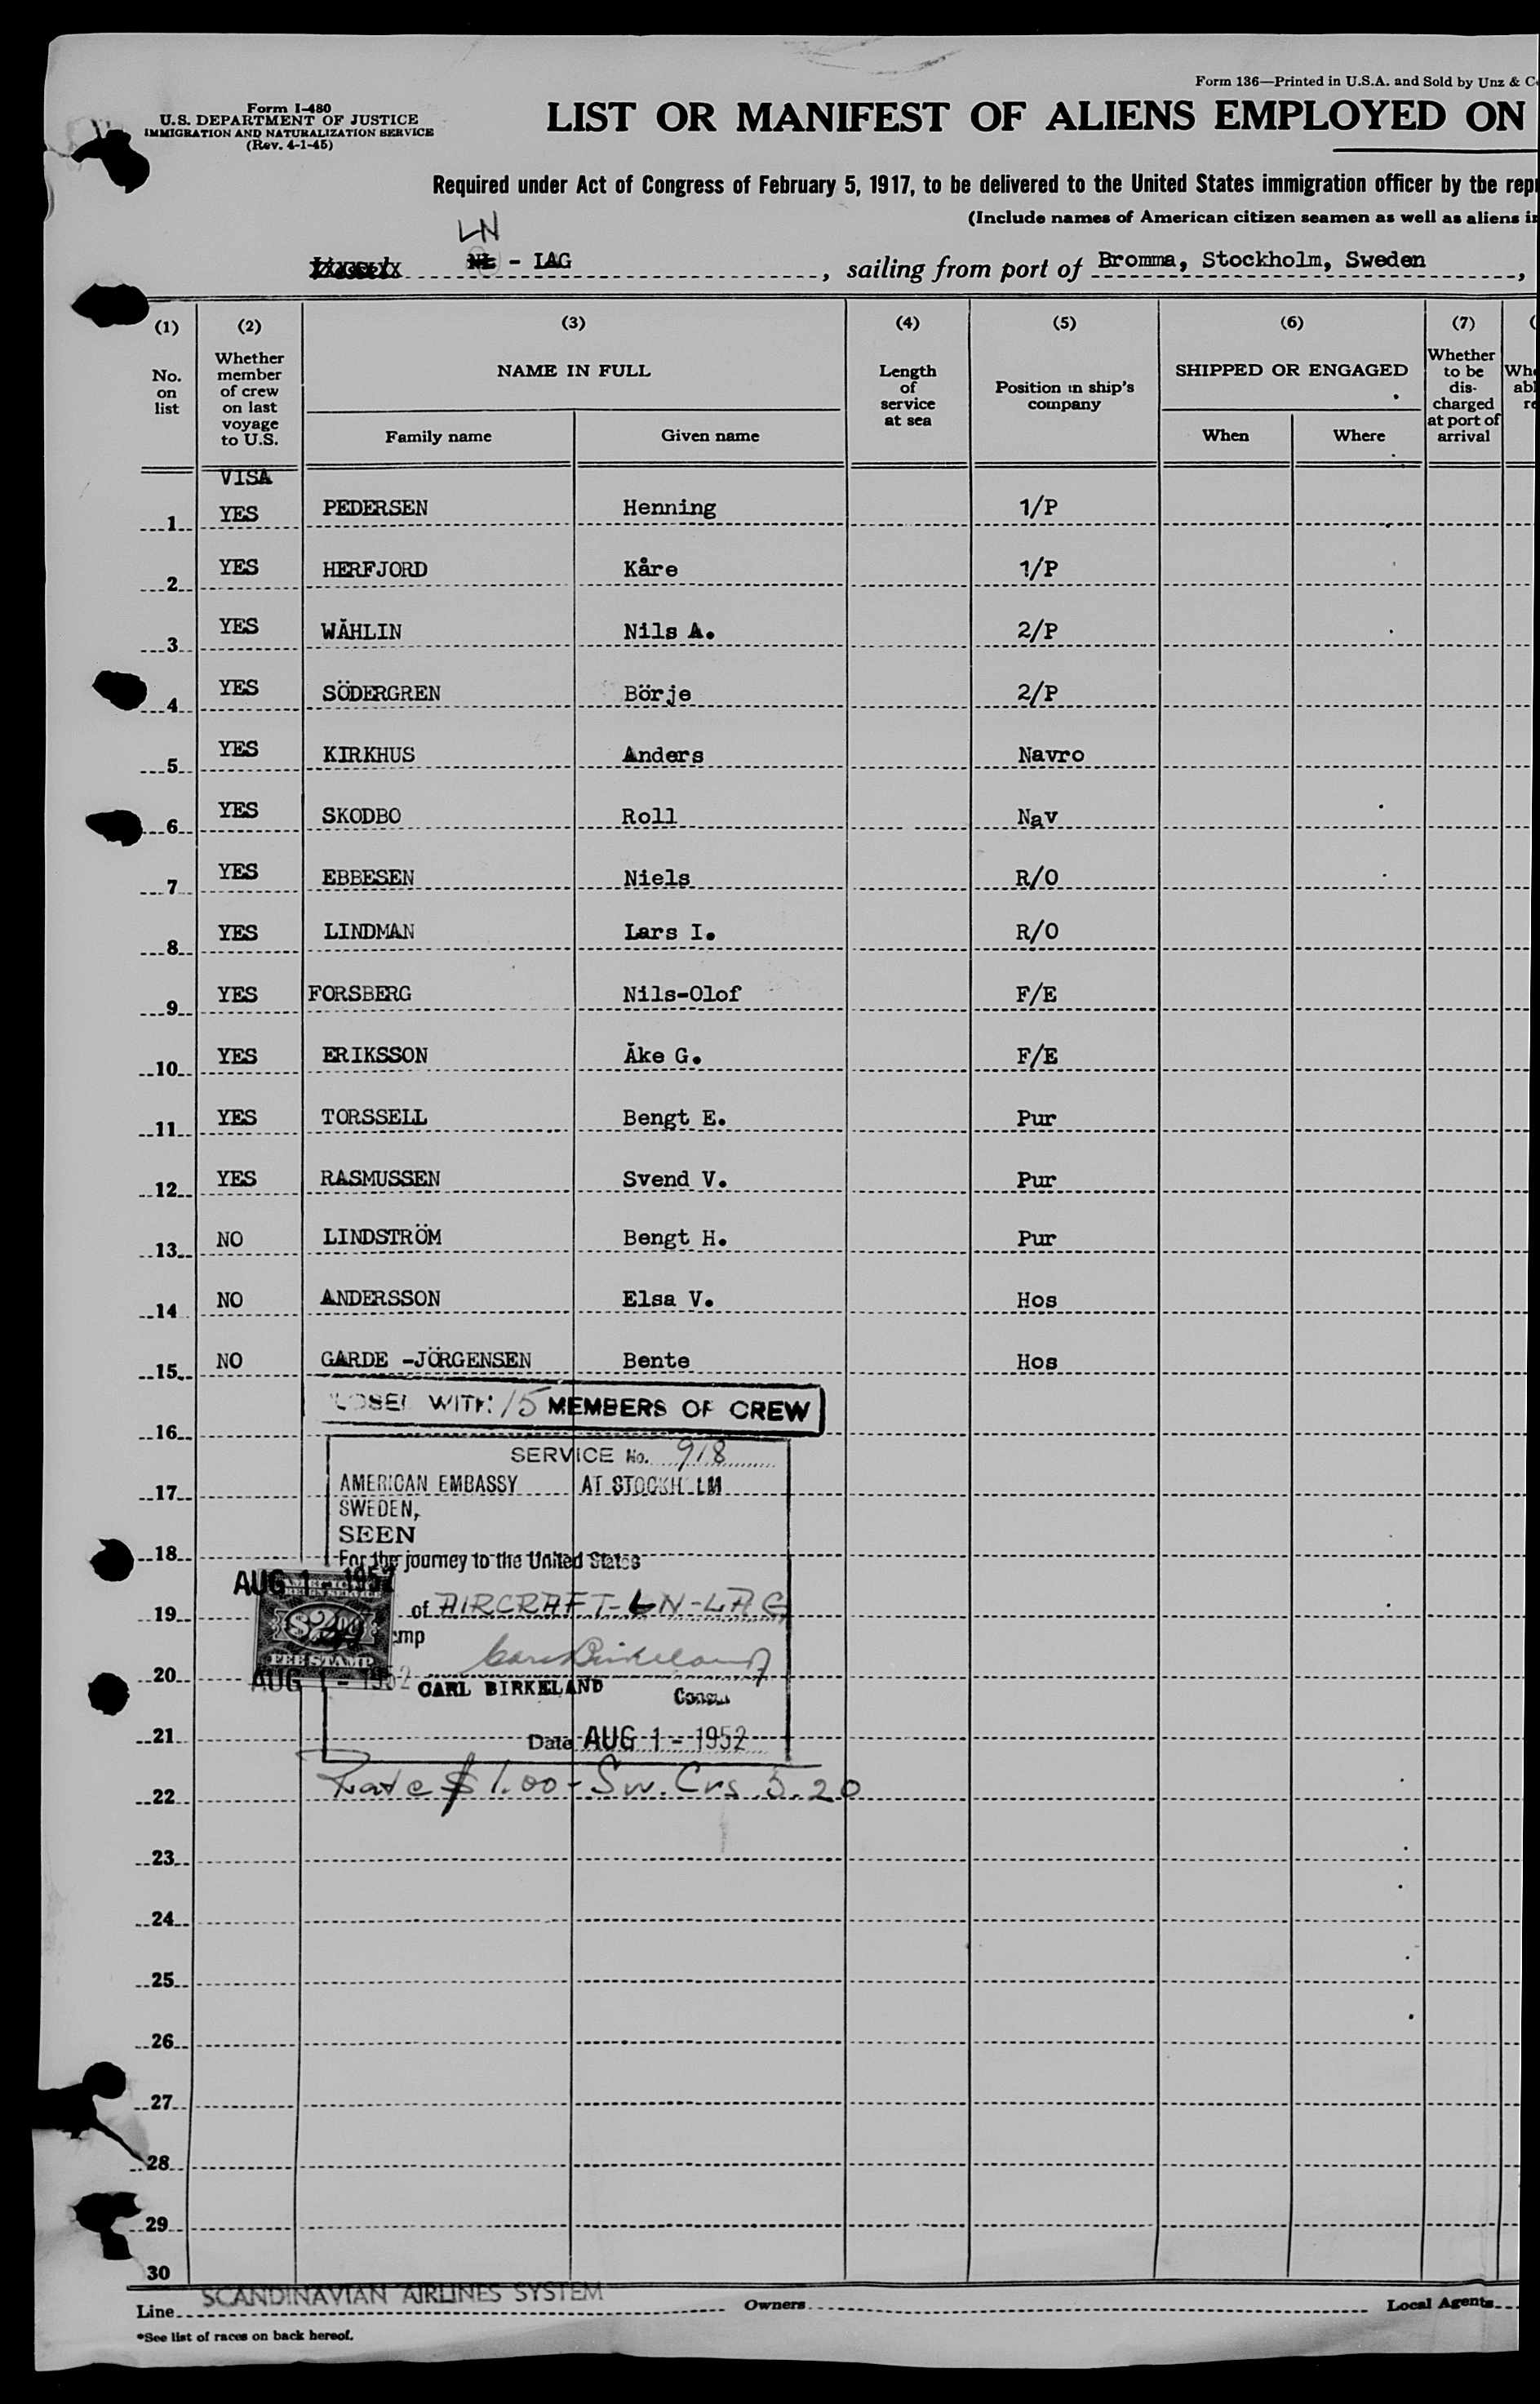 Form 136—Printed in U.S.A. and Sold by Unz & C
Form I-480
U.S. DEPARTMENT OF JUSTICE
IMMIGRATION AND NATURALIZATION SERVICE
(Rev. 4-1-45)
LIST OR MANIFEST OF ALIENS EMPLOYED ON
Required under Act of Congress of February 5, 1917, to be delivered to the United States immigration officer by the rep
(Include names of American citizen seamen as well as aliens i
LN
- LAG, sailing from port of Bromma, Stockholm, Sweden,
(1) (2) (3) (4) (5) (6) (7)
No. on list
Whether member of crew on last voyage to U.S.
NAME IN FULL
Family name Given name
Length of service at sea
Position in ship's company
SHIPPED OR ENGAGED
When Where
Whether to be discharged at port of arrival
VISA
1 YES PEDERSEN Henning 1/P
2 YES HERFJORD Kåre 1/P
3 YES WÅHLIN Nils A. 2/P
4 YES SÖDERGREN Börje 2/P
5 YES KIRKHUS Anders Navro
6 YES SKODBO Roll Nav
7 YES EBBESEN Niels R/O
8 YES LINDMAN Lars I. R/O
9 YES FORSBERG Nils-Olof F/E
10 YES ERIKSSON Åke G. F/E
11 YES TORSSELL Bengt E. Pur
12 YES RASMUSSEN Svend V. Pur
13 NO LINDSTRÖM Bengt H. Pur
14 NO ANDERSSON Elsa V. Hos
15 NO GARDE -JÖRGENSEN Bente Hos
WITH 15 MEMBERS OF CREW
16
SERVICE No. 918
17 AMERICAN EMBASSY AT STOCKHOLM
SWEDEN,
SEEN
18 For the journey to the United States
AUG 1 - 1952
19 of AIRCRAFT-LN-LAG
$2.00
FEE STAMP
20 Carl Birkeland
AUG 1 - 1952
CARL BIRKELAND Consul
21 Date AUG 1 - 1952
22 Rate $ 1.00 - Sw. Crs. 5.20
23
24
25
26
27
28
29
30
Line SCANDINAVIAN AIRLINES SYSTEM Owners Local Agents
*See list of races on back hereof.